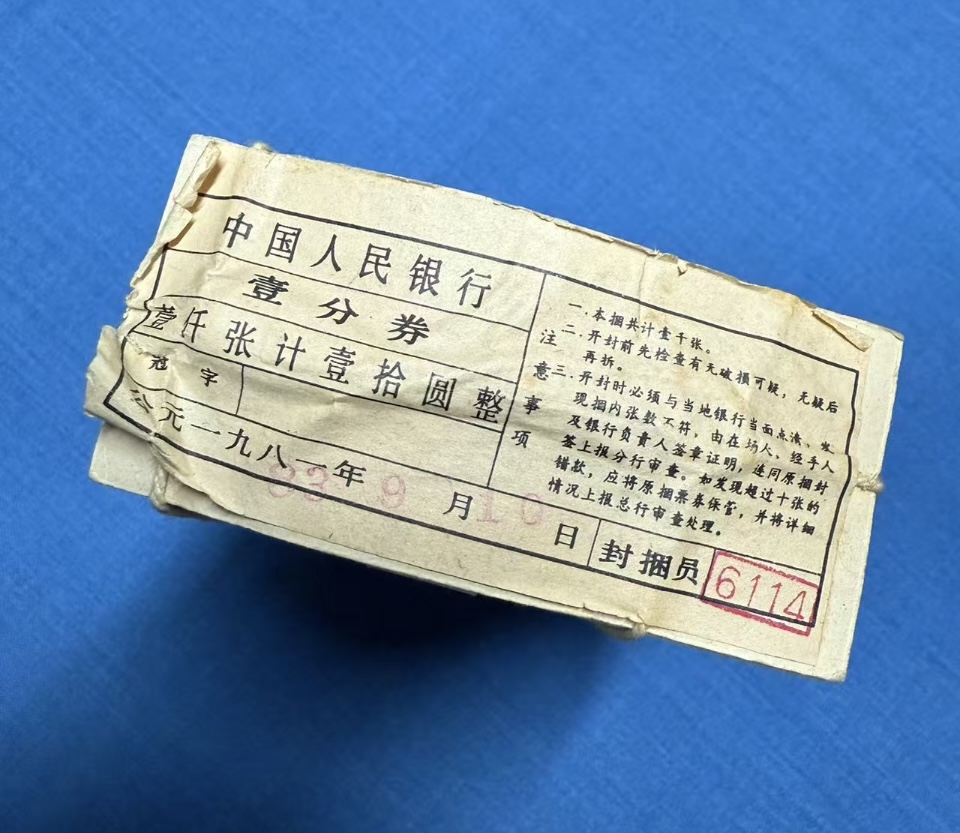 中国人民银行
壹分券
壹仟张计壹拾圆整
冠字
公元一九八一年 月 日
83 9 10
注意事项
一.本捆共计壹千张。
二.开封前先检查有无破损可疑，无疑后
再拆。
三.开封时必须与当地银行当面点清、发
现捆内张数不符，由在场人、经手人
及银行负责人签章证明，连同原捆封
签上报分行审查。如发现超过十张的
错款，应将原捆票券保管，并将详细
情况上报总行审查处理。
封捆员
6114